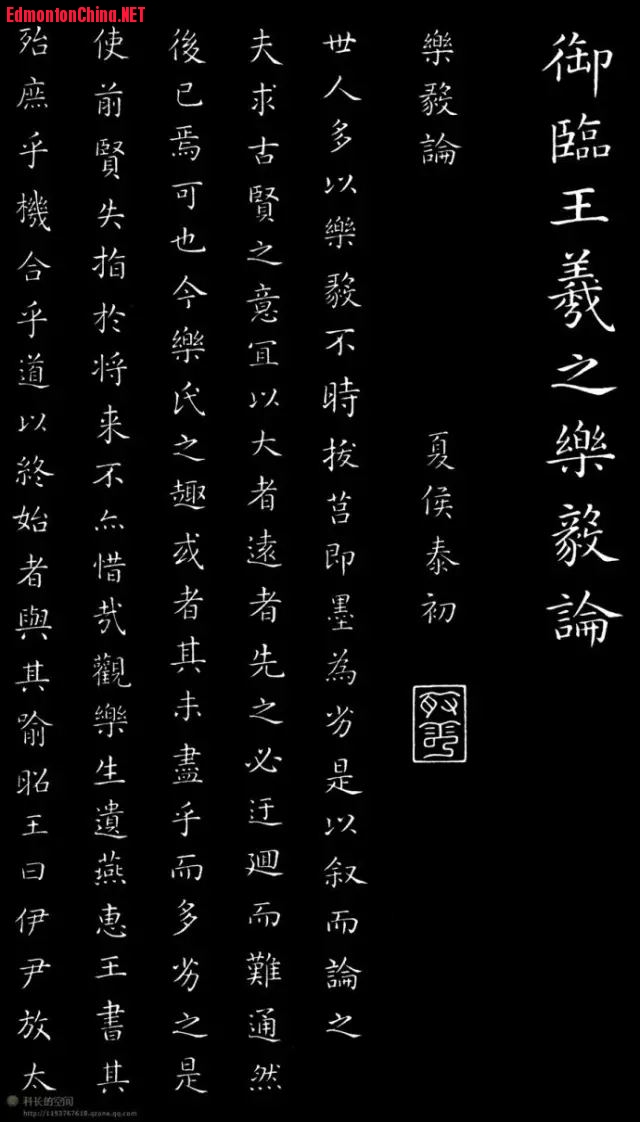 EdmontonChina.NET
御臨王羲之樂毅論
樂毅論
夏侯泰初
世人多以樂毅不時拔莒即墨為劣是以叙而論之
夫求古賢之意宜以大者遠者先之必迂迴而難通然
後已焉可也今樂氏之趣或者其未盡乎而多劣之是
使前賢失指於将来不亦惜哉觀樂生遺燕惠王書其
殆庶乎機合乎道以終始者與其喻昭王曰伊尹放太
科长的空间
http://1193767618.qzone.qq.com